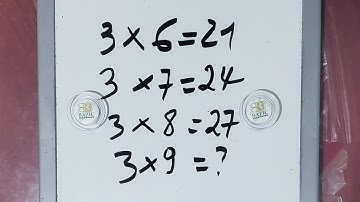 3×6=21
3×7=24
3×8=27
3×9=?